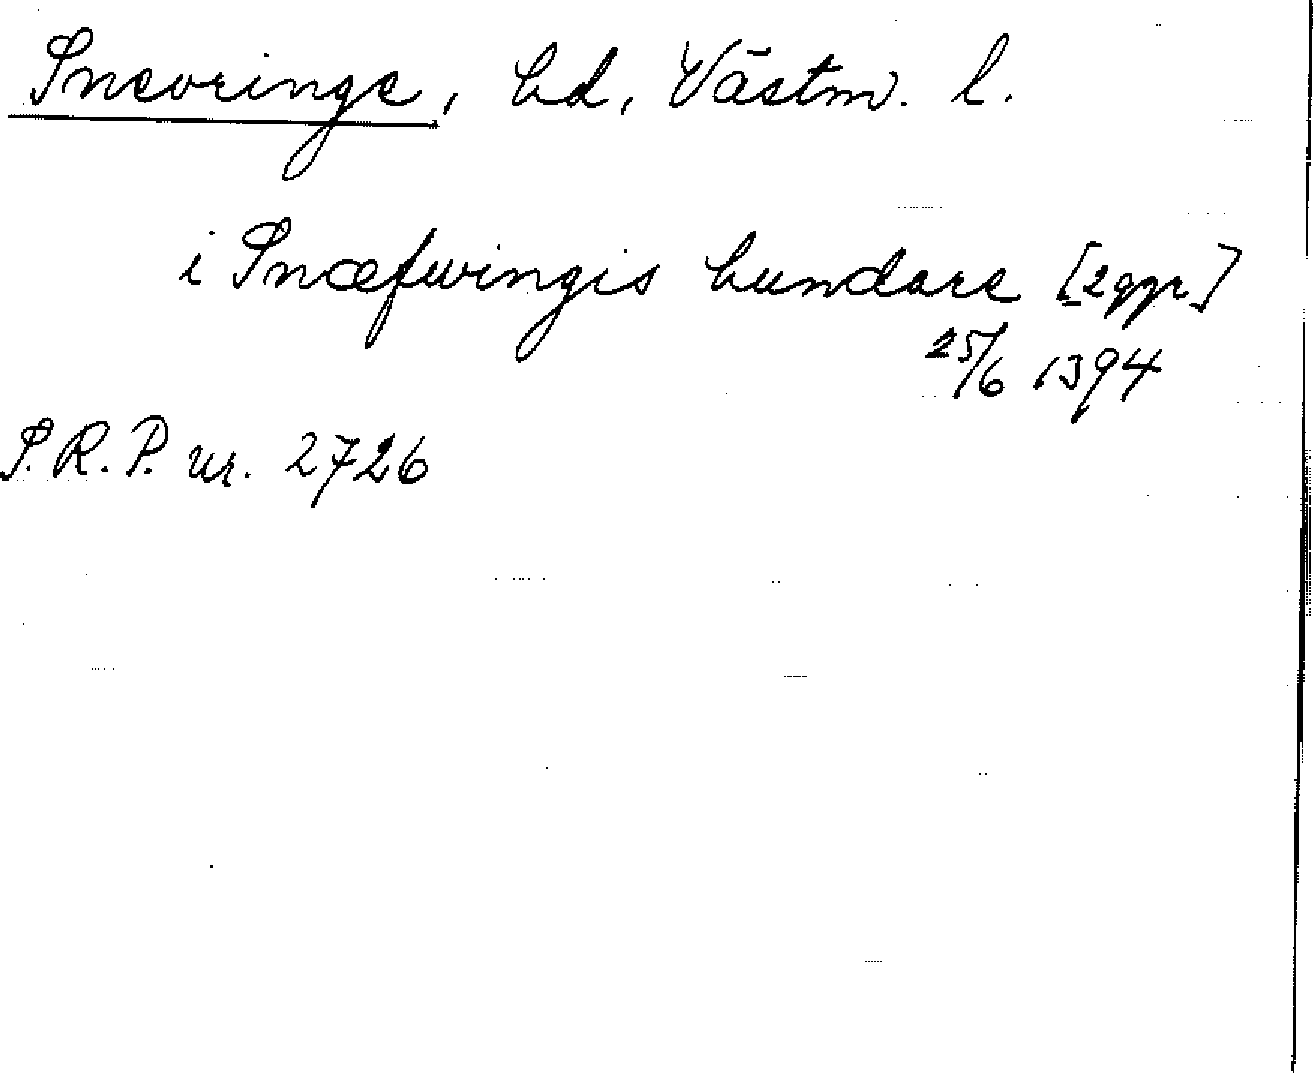 Snevringe, hd, Västm. l.
i Snæfwingis hundare [2 ggr]
25/6 1394
S.R.P. nr. 2726